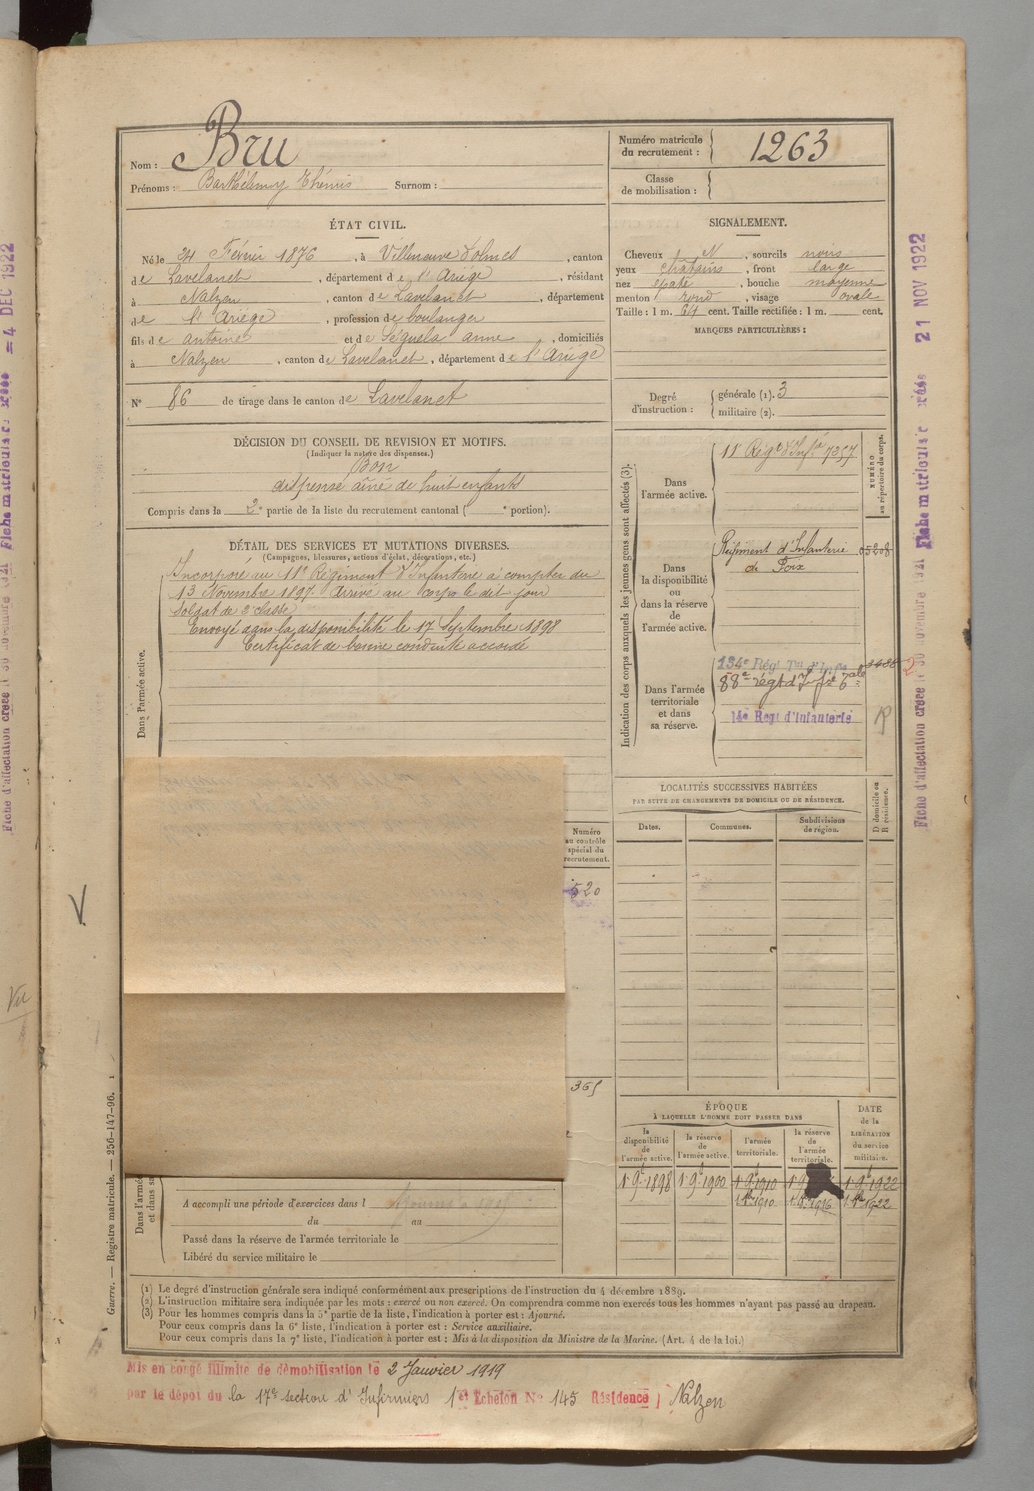 Nom : Bru
Prénoms : Barthélemy Thémis Surnom :
Numéro matricule du recrutement : 1263
Classe de mobilisation :
ÉTAT CIVIL.
Né le 24 Février 1876, à Villeneuve d'olmes, canton
de Lavelanet, département de l'Ariége, résidant
à Nalzen, canton de Lavelanet, département
de l'Ariége, profession de boulanger
fils de antoine et de Séguela anne, domiciliés
à Nalzen, canton de Lavelanet, département de l'Ariége
N° 86 de tirage dans le canton de Lavelanet
SIGNALEMENT.
Cheveux et N, sourcils noirs
yeux chatains, front large
nez épaté, bouche moyenne
menton rond, visage ovale
Taille : 1 m. 64 cent. Taille rectifiée : 1 m. cent.
MARQUES PARTICULIÈRES :
Degré d'instruction : générale (1). 3
militaire (2).
DÉCISION DU CONSEIL DE REVISION ET MOTIFS.
(Indiquer la nature des dispenses.)
Bon
dispensé aîné de huit enfants
Compris dans la 2e partie de la liste du recrutement cantonal ( e portion).
DÉTAIL DES SERVICES ET MUTATIONS DIVERSES.
(Campagnes, blessures, actions d'éclat, décorations, etc.)
Dans l'armée active.
Incorporé au 11e Régiment d'Infanterie à compter du
13 Novembre 1897. Arrivé au corps le dit jour
Soldat de 2e classe
Envoyé dans la disponibilité le 17 Septembre 1898
Certificat de bonne conduite accordé
Indication des corps auxquels les jeunes gens sont affectés (3).
NUMÉRO au répertoire du corps.
Dans l'armée active.
11e Régt d'Infie 7257
Dans la disponibilité ou dans la réserve de l'armée active.
Régiment d'Infanterie 05208
de Foix
Dans l'armée territoriale et dans sa réserve.
134e Régt Tal d'Infie
88e régt d'Infie
14e Régt d'Infanterie
LOCALITÉS SUCCESSIVES HABITÉES
PAR SUITE DE CHANGEMENTS DE DOMICILE OU DE RÉSIDENCE.
Dates. Communes. Subdivisions de région. D domicile ou R résidence.
Numéro au contrôle spécial du recrutement.
520
365
ÉPOQUE
À LAQUELLE L'HOMME DOIT PASSER DANS
la disponibilité de l'armée active. la réserve de l'armée active. l'armée territoriale. la réserve de l'armée territoriale.
DATE de la LIBÉRATION du service militaire.
1 9e 1898 1 9e 1900 1 9e 1910 1 9e 1922
1 8e 1910 1 8e 1916 1 8e 1922
A accompli une période d'exercices dans l
du au
Passé dans la réserve de l'armée territoriale le
Libéré du service militaire le
(1) Le degré d'instruction générale sera indiqué conformément aux prescriptions de l'instruction du 4 décembre 1889.
(2) L'instruction militaire sera indiquée par les mots : exercé ou non exercé. On comprendra comme non exercés tous les hommes n'ayant pas passé au drapeau.
(3) Pour les hommes compris dans la 5e partie de la liste, l'indication à porter est : Ajourné.
Pour ceux compris dans la 6e liste, l'indication à porter est : Service auxiliaire.
Pour ceux compris dans la 7e liste, l'indication à porter est : Mis à la disposition du Ministre de la Marine. (Art. 4 de la loi.)
Mis en congé illimité de démobilisation le 2 Janvier 1919
par le dépôt du la 17e section d'Infirmiers 1er Echelon No 145 Résidence Nalzen
Guerre. — Registre matricule. — 256-147-96.
V.
Vu
Fiche d'affectation créée le 30 novembre 1921 Fiche matricule créée = 4 DEC 1922
Fiche d'affectation créée le 30 novembre 1921 Fiche matricule créée 21 NOV 1922